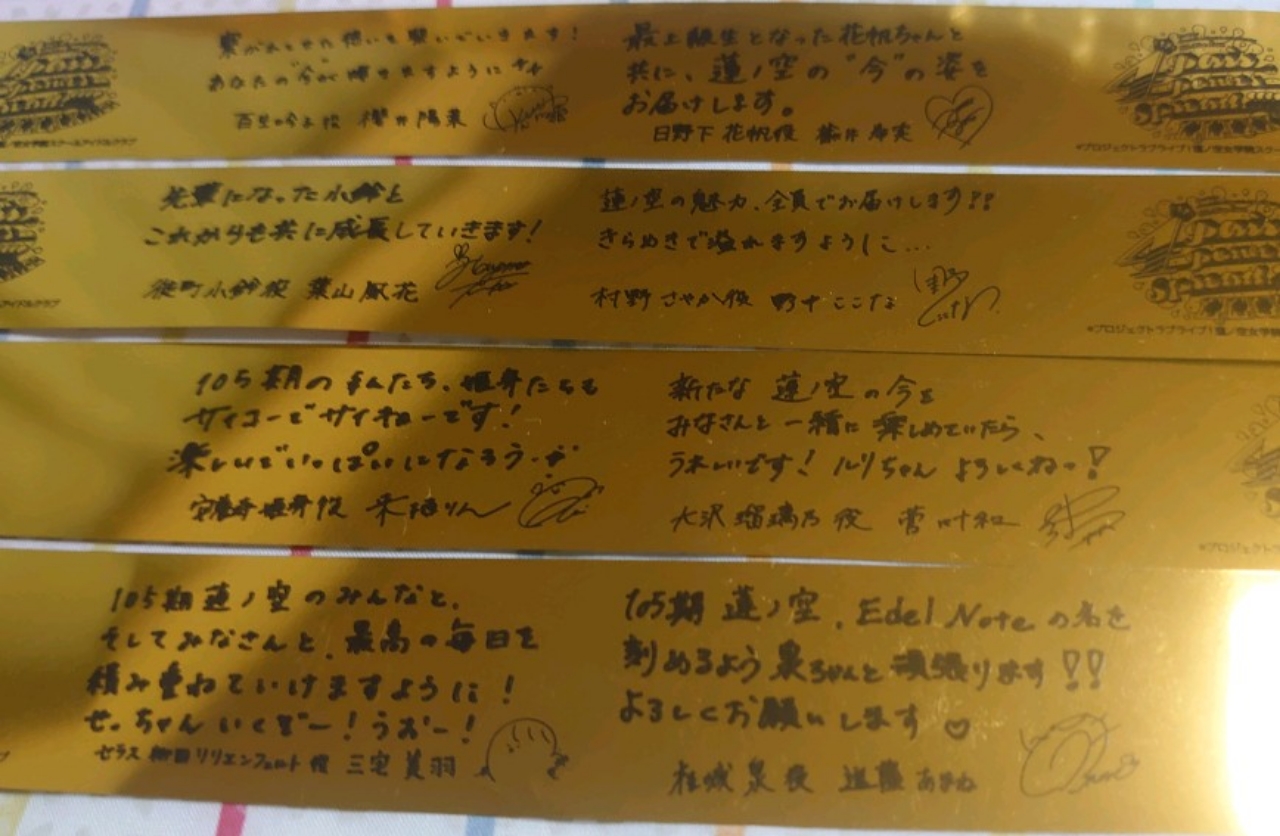 繋がれてきた想いを繋いでいきます!
あなたの“今”が輝きますように
百生吟子役 櫻井陽菜
最上級生となった花帆ちゃんと
共に、蓮ノ空の“今”の姿を
お届けします。
日野下花帆役
©プロジェクトラブライブ!蓮ノ空女学院スクー
先輩になった小鈴と
これからも共に成長していきます!
徒町小鈴役 葉山風花
蓮ノ空の魅力、全員でお届けします!!
きらめきで溢れますように...
村野さやか役 野中ここな
©プロジェクトラブライブ!蓮ノ空女学院
105期の みんたち、姫芽たちも
サイコーでサイキョーです!
楽しいでいっぱいになろう
安養寺姫芽役 来栖りん
新たな 蓮ノ空の今を
みなさんと一緒に楽しめていたら、
うれしいです! ルリちゃん よろしくねっ!
大沢瑠璃乃役 菅叶和
105期蓮ノ空のみんなと、
そしてみなさんと、最高の毎日を
積み重ねていけますように!
せっちゃん いくぞー!うおー!
セラス 柳田 リリエンフェルト役 三宅美羽
105期 蓮ノ空、Edel Noteの名を
刻めるよう泉ちゃんと頑張ります!!
よろしくお願いします♡
桂城泉役 進藤あまね